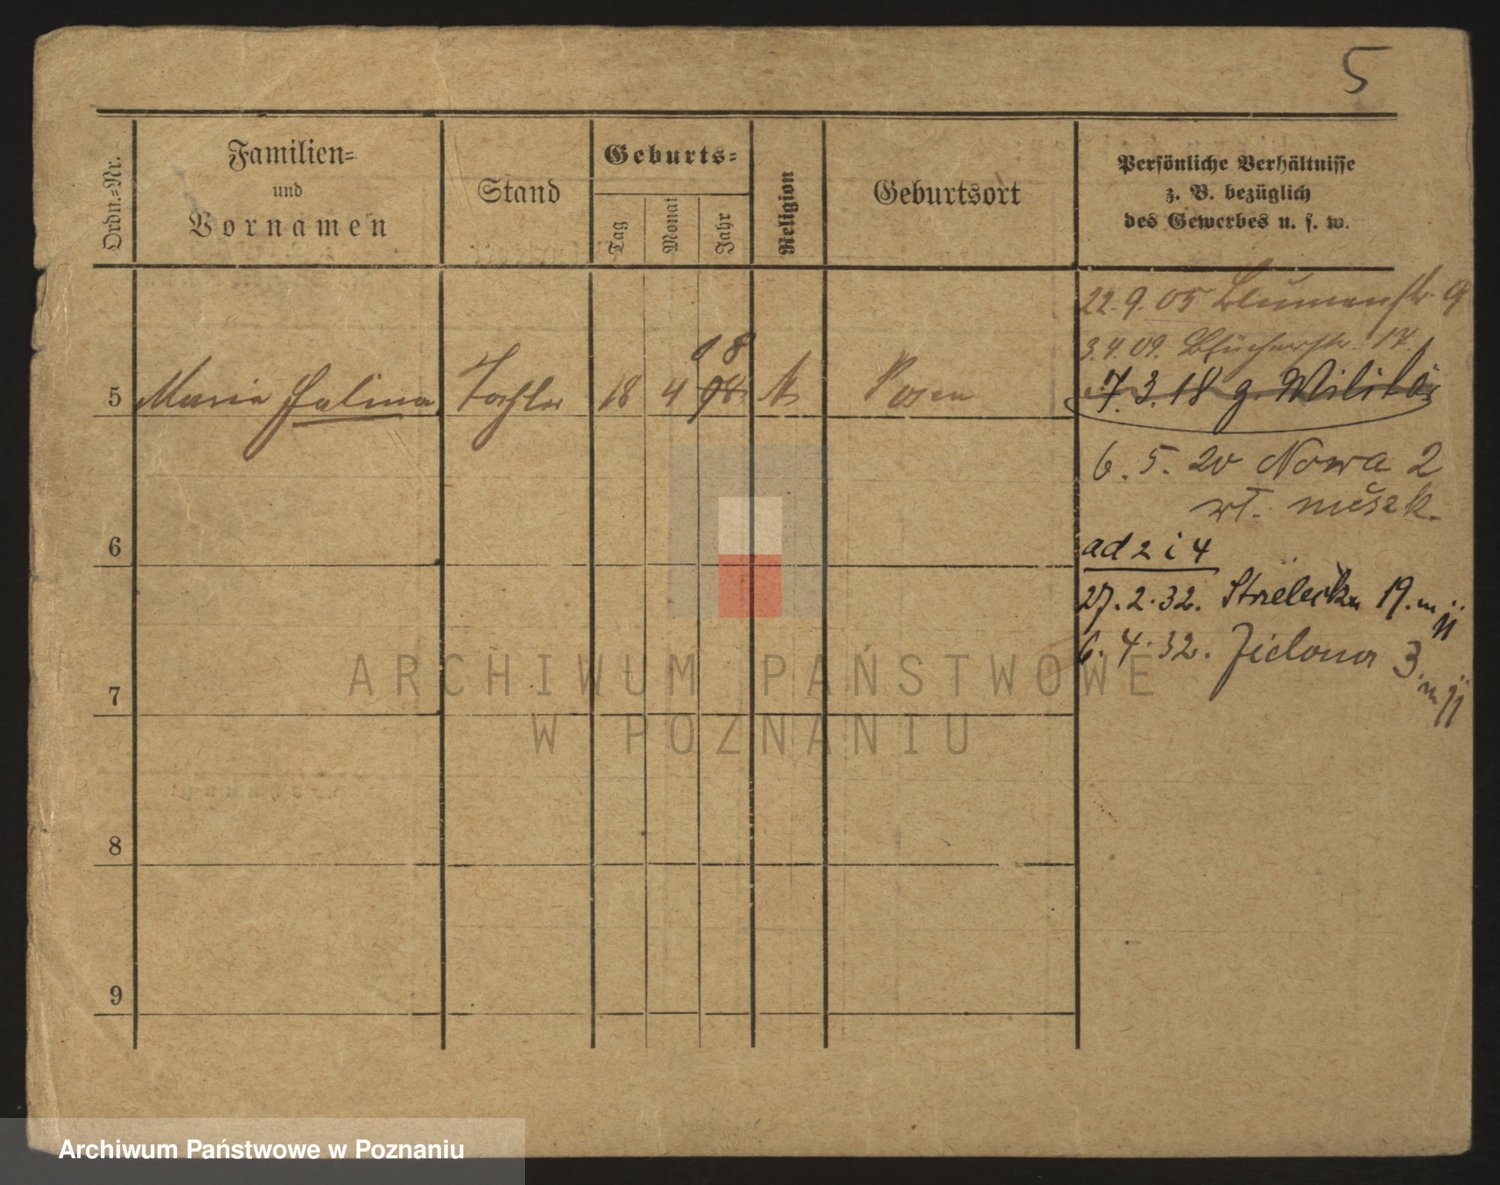 5
Ordn.-Nr.
Familien-
und
Vornamen
Stand
Geburts-
Tag
Monat
Jahr
Religion
Geburtsort
Persönliche Verhältnisse
z. B. bezüglich
des Gewerbes u. s. w.
22.9.05 Blumenstr. 9
3.4.09. Blücherstr. 17
08
5 Marie Halina Tochter 18 4 98 k Posen
7.3.18 z. Militär
6.5.20 Nowa 2
wł. mieszk.
6
ad 2 i 4
27.2.32. Strzelecka 19. m
6.4.32. Zielona 3. m
7
8
9
ARCHIWUM PAŃSTWOWE
W POZNANIU
Archiwum Państwowe w Poznaniu